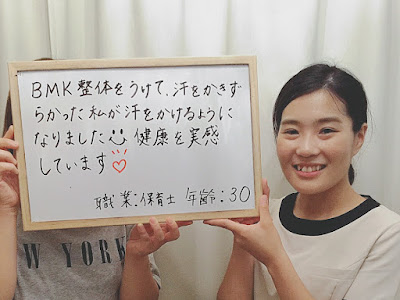 BMK整体をうけて、汗をかきず
らかった私が汗をかけるように
なりました 健康を実感
しています♡
職業:保育士 年齢:30
EW YORK